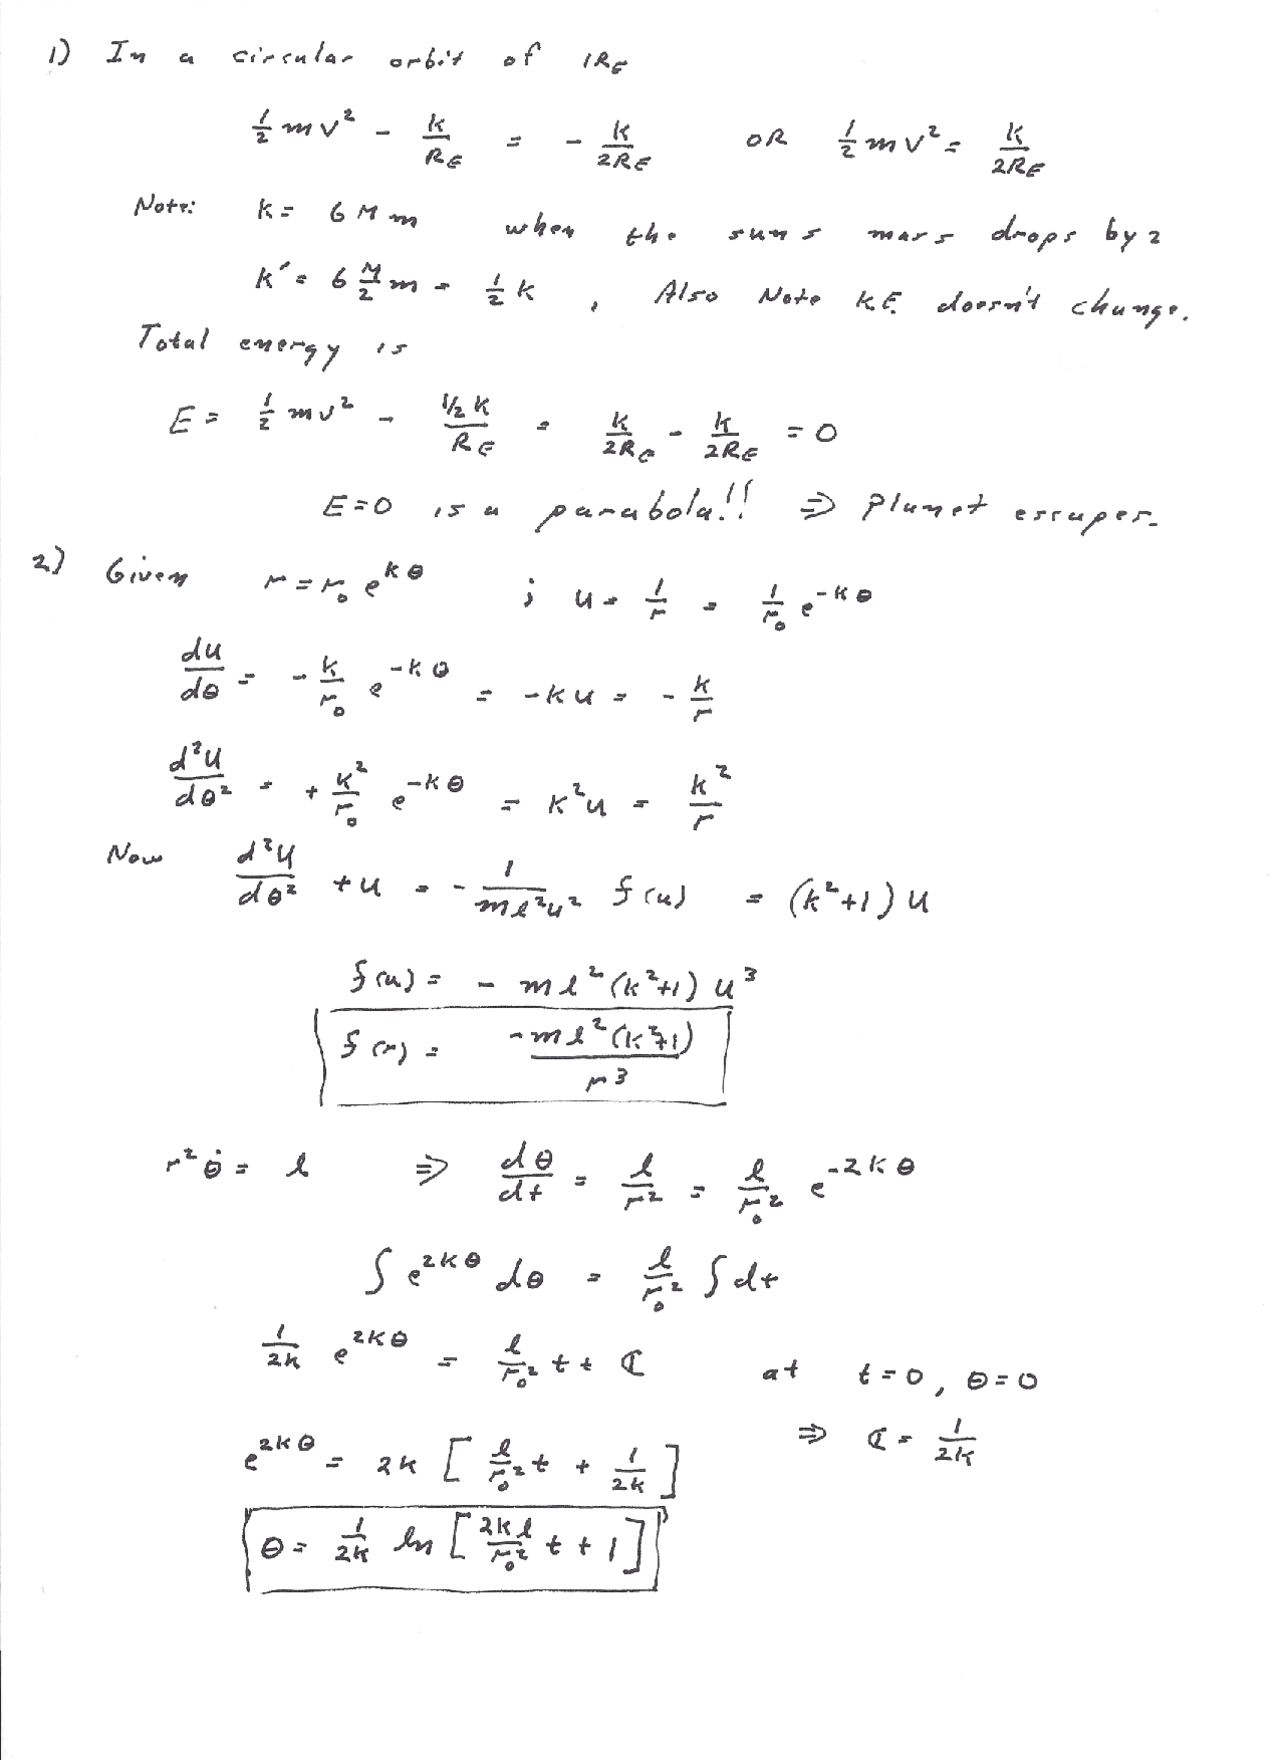 1) In a circular orbit of 1R_E
½ m v² - k/R_E = - k/2R_E OR ½ m v² = k/2R_E
Note: k = G M m when the suns mass drops by 2
k' = G M/2 m = ½ k , Also Note K.E. doesn't change.
Total energy is
E = ½ m v² - ½ k/R_E = k/2R_E - k/2R_E = 0
E = 0 is a parabola!! ⇒ Planet escapes.
2) Given r = r₀ e^{kθ} ; u = 1/r = 1/r₀ e^{-kθ}
du/dθ = - k/r₀ e^{-kθ} = -ku = - k/r
d²u/dθ² = + k²/r₀ e^{-kθ} = k²u = k²/r
Now d²u/dθ² + u = - 1/(mℓ²u²) f(u) = (k²+1) u
f(u) = - mℓ²(k²+1) u³
f(r) = -mℓ²(k²+1)/r³
r²θ̇ = ℓ ⇒ dθ/dt = ℓ/r² = ℓ/r₀² e^{-2kθ}
∫ e^{2kθ} dθ = ℓ/r₀² ∫ dt
1/2k e^{2kθ} = ℓ/r₀² t + C at t = 0, θ = 0
⇒ C = 1/2k
e^{2kθ} = 2k [ ℓ/r₀² t + 1/2k ]
θ = 1/2k ln [ 2kℓ/r₀² t + 1 ]